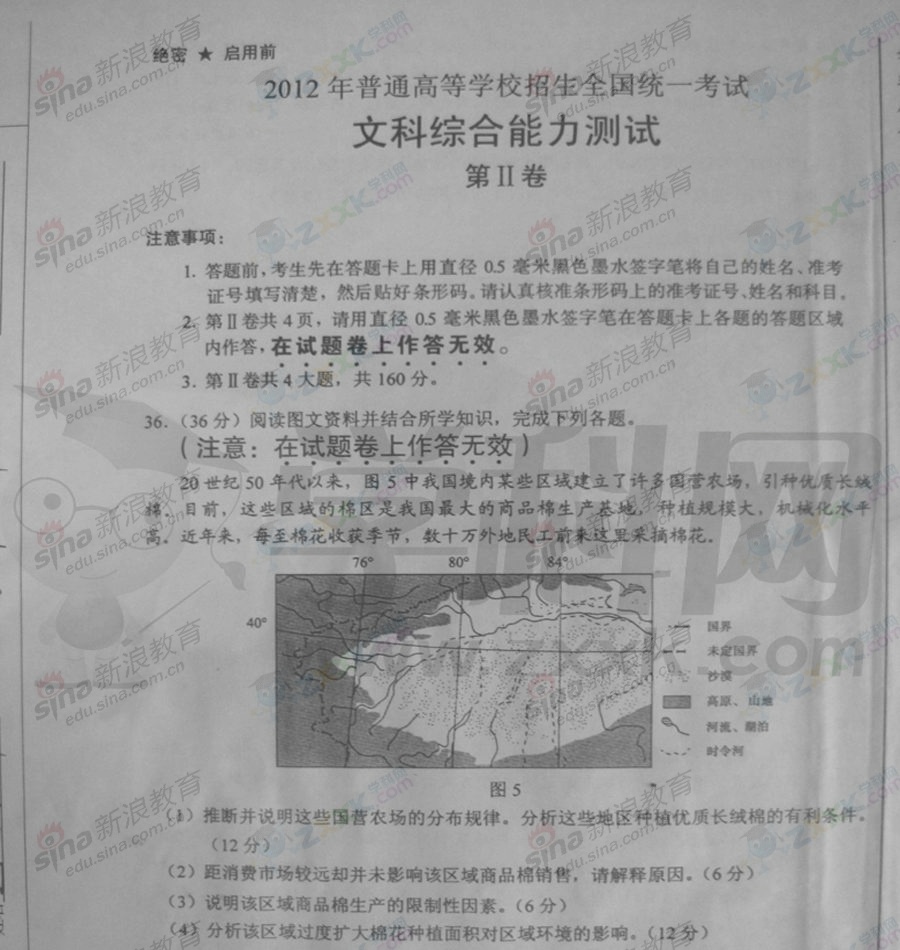 绝密 ★ 启用前
2012 年普通高等学校招生全国统一考试
文科综合能力测试
第Ⅱ卷
注意事项：
1. 答题前，考生先在答题卡上用直径 0.5 毫米黑色墨水签字笔将自己的姓名、准考
证号填写清楚，然后贴好条形码。请认真核准条形码上的准考证号、姓名和科目。
2. 第Ⅱ卷共 4 页，请用直径 0.5 毫米黑色墨水签字笔在答题卡上各题的答题区域
内作答，在试题卷上作答无效。
3. 第Ⅱ卷共 4 大题，共 160 分。
36.（36 分）阅读图文资料并结合所学知识，完成下列各题。
（注意：在试题卷上作答无效）
20 世纪 50 年代以来，图 5 中我国境内某些区域建立了许多国营农场，引种优质长绒
棉。目前，这些区域的棉区是我国最大的商品棉生产基地，种植规模大，机械化水平
高。近年来，每至棉花收获季节，数十万外地民工前来这里采摘棉花。
76° 80° 84°
40°
国界
未定国界
沙漠
高原、山地
河流、湖泊
时令河
图 5
（1）推断并说明这些国营农场的分布规律。分析这些地区种植优质长绒棉的有利条件。
（12 分）
（2）距消费市场较远却并未影响该区域商品棉销售，请解释原因。（6 分）
（3）说明该区域商品棉生产的限制性因素。（6 分）
（4）分析该区域过度扩大棉花种植面积对区域环境的影响。（12 分）
sina 新浪教育
edu.sina.com.cn
学科网
www.zxxk.com